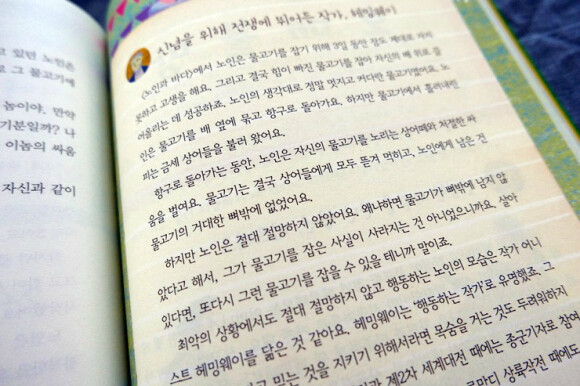 있던 노인은
고 그 물고기에
놈이야. 만약
기분일까? 나
이놈의 싸움
자신과 같이
신념을 위해 전쟁에 뛰어든 작가, 헤밍웨이
《노인과 바다》에서 노인은 물고기를 잡기 위해 3일 동안 잠도 제대로 자지
못하고 고생을 해요. 그리고 결국 힘이 빠진 물고기를 잡아 자신의 배 위로 끌
어올리는 데 성공하죠. 노인의 생각대로 정말 멋지고 커다란 물고기였어요. 노
인은 물고기를 배 옆에 묶고 항구로 돌아가요. 하지만 물고기에서 흘러내린
피는 금세 상어들을 불러 왔어요.
항구로 돌아가는 동안, 노인은 자신의 물고기를 노리는 상어떼와 처절한 싸
움을 벌여요. 물고기는 결국 상어들에게 모두 뜯겨 먹히고, 노인에게 남은 건
물고기의 거대한 뼈밖에 없었어요.
하지만 노인은 절대 절망하지 않았어요. 왜냐하면 물고기가 뼈밖에 남지 않
았다고 해서, 그가 물고기를 잡은 사실이 사라지는 건 아니었으니까요. 살아
있다면, 또다시 그런 물고기를 잡을 수 있을 테니까 말이죠.
최악의 상황에서도 절대 절망하지 않고 행동하는 노인의 모습은 작가 어니
스트 헤밍웨이를 닮은 것 같아요. 헤밍웨이는 '행동하는 작가'로 유명했죠. 그
고 믿는 것을 지키기 위해서라면 목숨을 거는 것도 두려워하지
과 제2차 세계대전 때에는 종군기자로 참여
상륙작전 때에도